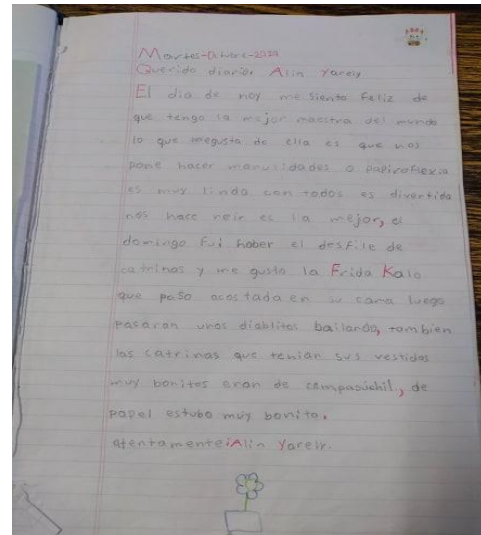 Martes-Octubre-2024
Querido diario: Alin Yareiy
El dia de hoy me siento feliz de
que tengo la mejor maestra del mundo
lo que megusta de ella es que nos
pone hacer manulidades o papiroflexia
es muy linda con todos es divertida
nos hace reir es la mejor, el
domingo fui haber el desfile de
catrinas y me gusto la Frida Kalo
que paso acostada en su cama luego
pasaron unos diablitos bailando, tambien
las catrinas que tenian sus vestidos
muy bonitos eran de cempasúchil, de
papel estubo muy bonito.
atentamente: Alin Yareiy.